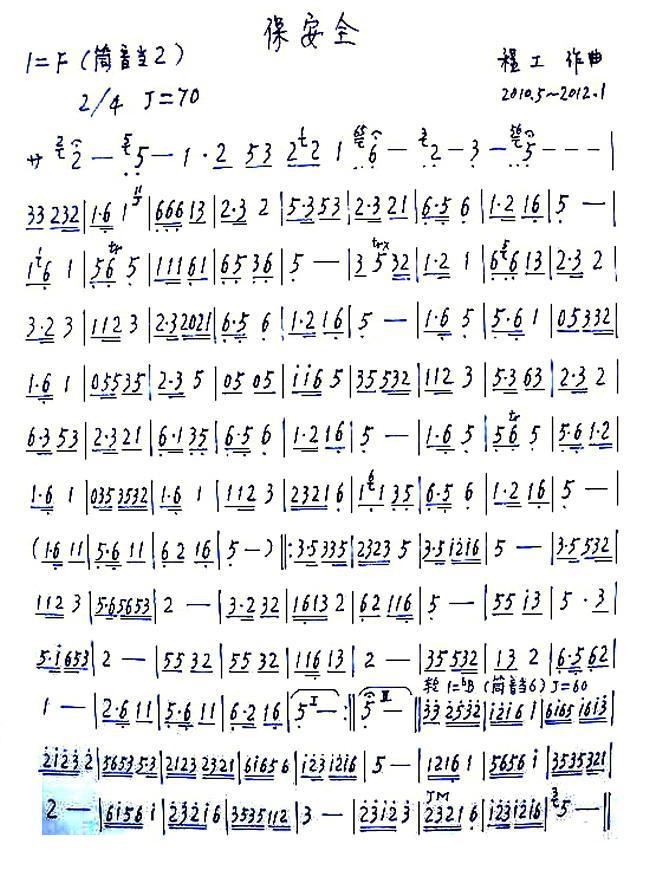 保安全
1=F (筒音当2)
程工 作曲
2/4 J=70
2010.5~2012.1
サ 2/t 2 — 5/t 5 — 1 · 2 53 2 1/t 2 1 65/t 6 — 3/t 2 — 3 — 56/t 5 — — — |
33 232 | 1·6 1 | 666 13 | 2·3 2 | 5·3 53 | 2·3 21 | 6·5 6 | 1·2 16 | 5 — |
1 1/t 6 1 | 5 6 tr 5 | 111 61 | 65 36 | 5 — | 3 5 32 | 1·2 1 | 6 5/t 6 13 | 2·3 2 |
3·2 3 | 112 3 | 2·32021 | 6·5 6 | 1·2 16 | 5 — | 1·6 5 | 5·6 1 | 05 332 |
1·6 1 | 05535 | 2·3 5 | 05 05 | ii6 5 | 35 532 | 112 3 | 5·3 63 | 2·3 2 |
6·3 53 | 2·3 21 | 6·1 35 | 6·5 6 | 1·2 16 | 5 — | 1·6 5 | 5 6 tr 5 | 5·6 1·2 |
1·6 1 | 035 3532 | 1·6 1 | 112 3 | 2321 6 | 1 6/t 1 35 | 6·5 6 | 1·2 16 | 5 — |
(1·6 11 | 5·6 11 | 62 16 | 5 — ) ‖: 3·5 335 | 2323 5 | 3·5 i2i6 | 5 — | 3·5 532 |
112 3 | 5·65653 | 2 — | 3·2 32 | 1613 2 | 62 116 | 5 — | 55 i3 | 5 · 3 |
5·i653 | 2 — | 55 32 | 55 32 | 116 13 | 2 — | 35 532 | 13 2 | 6·5 62 |
轮 1=bB (筒音当6) J=60
1 — | 2·6 11 | 5·6 11 | 6·2 16 | 5 I — :‖ 5 II — ‖ 33 2532 | i2i6 i | 6i65 i6i3 |
2i23 2 | 5653 53 | 2123 2321 | 6i65 6 | i23 i2i6 | 5 — | 1216 1 | 5656 i | 3535321 |
2 — | 6156 1 | 232i6 | 3535 112 | 3 — | 23i23 | 2321 6 | i23i2i6 | 3/t 5 — ‖